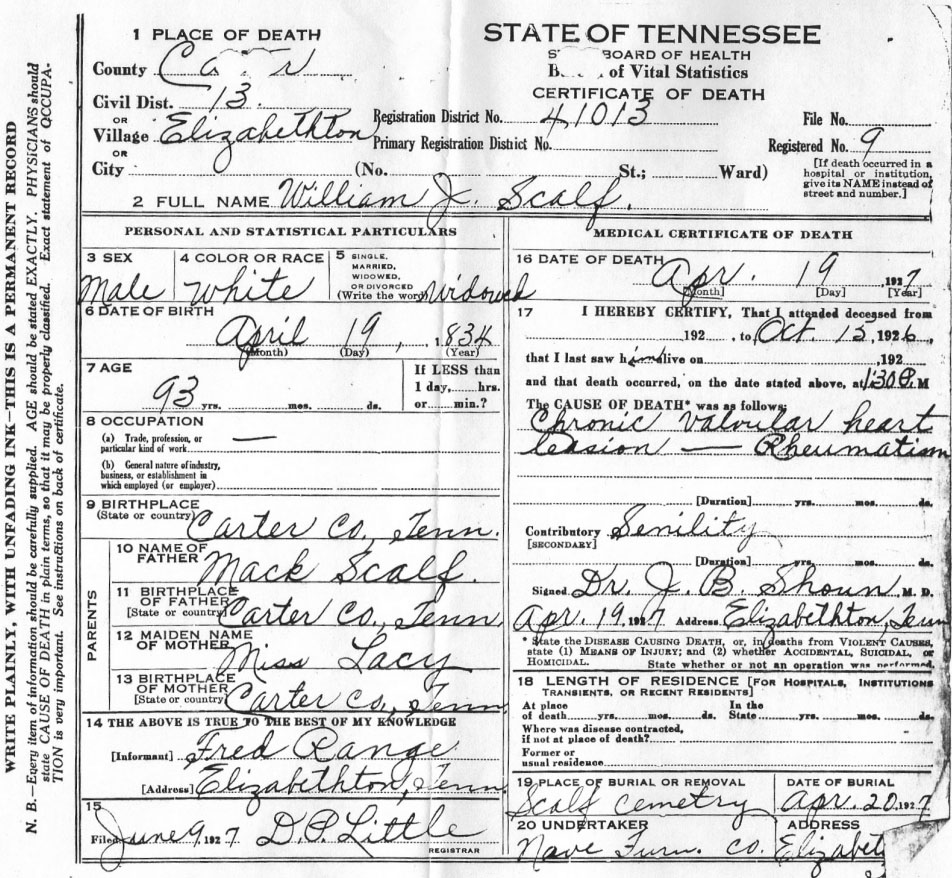 WRITE PLAINLY, WITH UNFADING INK—THIS IS A PERMANENT RECORD
N. B.—Every item of information should be carefully supplied. AGE should be stated EXACTLY. PHYSICIANS should
state CAUSE OF DEATH in plain terms, so that it may be properly classified. Exact statement of OCCUPA-
TION is very important. See instructions on back of certificate.
1 PLACE OF DEATH
County
Civil Dist. 13.
OR
Village Elizabethton
OR
City (No. St.; Ward)
STATE OF TENNESSEE
BOARD OF HEALTH
of Vital Statistics
CERTIFICATE OF DEATH
Registration District No. 41013
File No.
Primary Registration District No.
Registered No. 9
[If death occurred in a
hospital or institution,
give its NAME instead of
street and number.]
2 FULL NAME William J. Scalf.
PERSONAL AND STATISTICAL PARTICULARS
3 SEX
Male
4 COLOR OR RACE
White
5 SINGLE,
MARRIED,
WIDOWED,
OR DIVORCED
(Write the word) Widowed
6 DATE OF BIRTH
April 19, 1834
(Month) (Day) (Year)
7 AGE
93 yrs. mos. ds.
If LESS than
1 day, hrs.
or min.?
8 OCCUPATION
(a) Trade, profession, or
particular kind of work —
(b) General nature of industry,
business, or establishment in
which employed (or employer)
9 BIRTHPLACE
(State or country) Carter Co, Tenn.
PARENTS
10 NAME OF
FATHER Mack Scalf.
11 BIRTHPLACE
OF FATHER
[State or country] Carter Co, Tenn
12 MAIDEN NAME
OF MOTHER Miss Lacy
13 BIRTHPLACE
OF MOTHER
[State or country] Carter Co, Tenn
14 THE ABOVE IS TRUE TO THE BEST OF MY KNOWLEDGE
[Informant] Fred Range
[Address] Elizabethton, Tenn
15
Filed June 9, 1927 D.P. Little
REGISTRAR
MEDICAL CERTIFICATE OF DEATH
16 DATE OF DEATH
Apr. 19 1927
[Month] [Day] [Year]
17 I HEREBY CERTIFY, That I attended deceased from
192 , to Oct. 15, 1926,
that I last saw him alive on ,192
and that death occurred, on the date stated above, at 1:30 P. M
The CAUSE OF DEATH* was as follows:
Chronic valvular heart
leasion — Rheumatism
[Duration] yrs. mos. ds.
Contributory Senility
[SECONDARY]
[Duration] yrs. mos. ds.
Signed Dr. J. B. Shoun, M. D.
Apr. 19, 1927 Address Elizabethton, Tenn
* State the DISEASE CAUSING DEATH, or, in deaths from VIOLENT CAUSES,
state (1) MEANS OF INJURY; and (2) whether ACCIDENTAL, SUICIDAL, OR
HOMICIDAL. State whether or not an operation was performed.
18 LENGTH OF RESIDENCE [FOR HOSPITALS, INSTITUTIONS
TRANSIENTS, OR RECENT RESIDENTS]
At place
of death yrs. mos. ds.
In the
State yrs. mos. ds.
Where was disease contracted,
if not at place of death?
Former or
usual residence
19 PLACE OF BURIAL OR REMOVAL
Scalf cemetry
DATE OF BURIAL
Apr. 20, 1927
20 UNDERTAKER
Nave Furn. Co.
ADDRESS
Elizabet